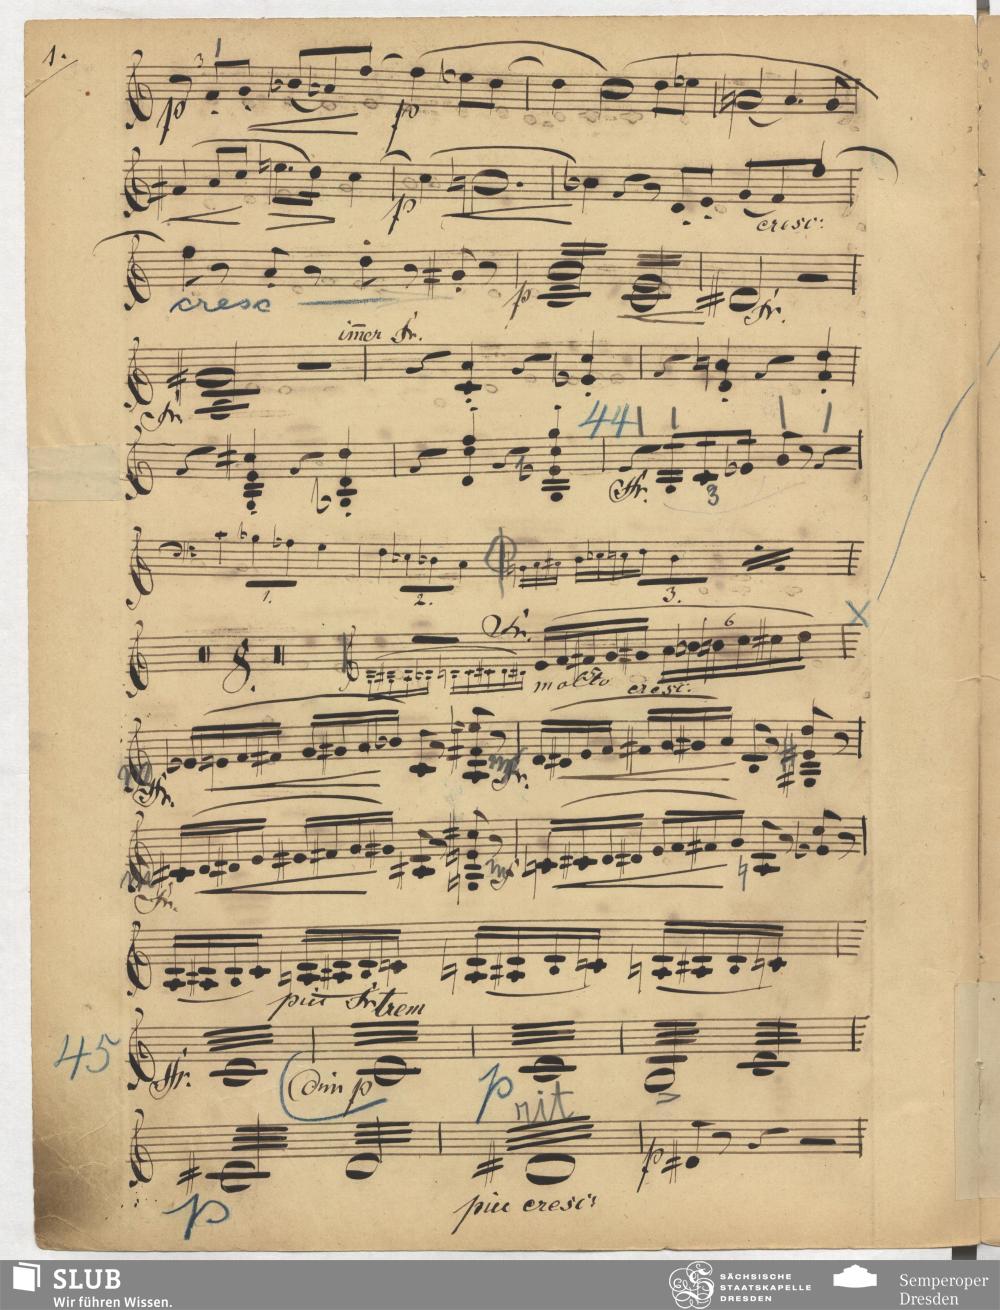 1.
3
p p
p cresc:
cresc p fr.
immer fr.
fr.
44
ffr. 3
1. 2. 3.
8
fr. 6
molto cresc:
fr. fr.
fr.
piu fr trem
45 ffr. dim p p rit
p piu cresc: p
SLUB
Wir führen Wissen.
SÄCHSISCHE
STAATSKAPELLE
DRESDEN
Semperoper
Dresden